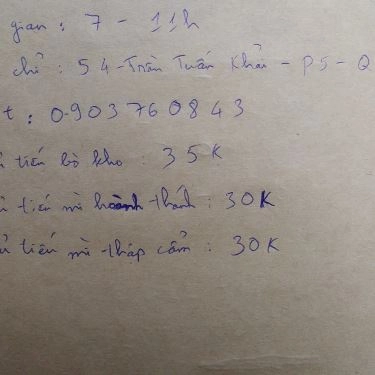 gian : 7 - 11h
chỉ : 54 - Trần Tuấn Khải - P5 - Q
t : 0903760843
tiếu bò kho : 35K
tiếu mì hoành thánh : 30K
tiếu mì thập cẩm : 30K